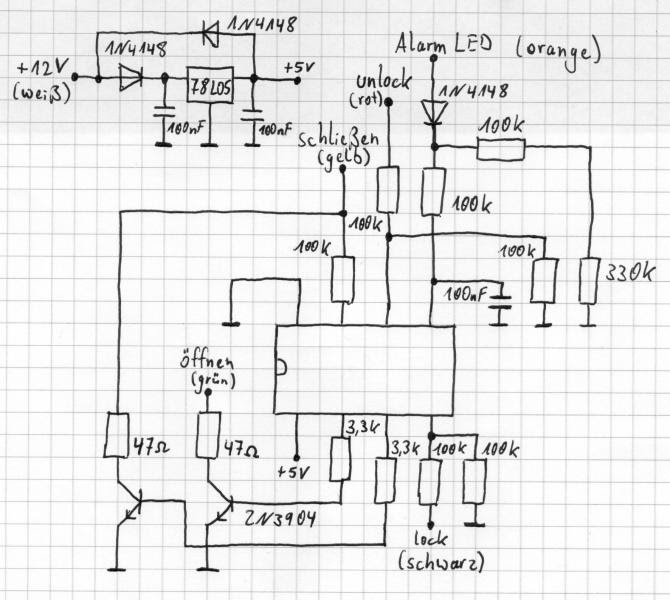 1N4148
1N4148
+12V
(weiß)
78L05
+5V
100nF
100nF
Alarm LED (orange)
unlock
(rot)
1N4148
100k
schließen
(gelb)
100k
100k
100k
100k
330k
100nF
öffnen
(grün)
47Ω
47Ω
3,3k
3,3k
100k
100k
+5V
2N3904
lock
(schwarz)